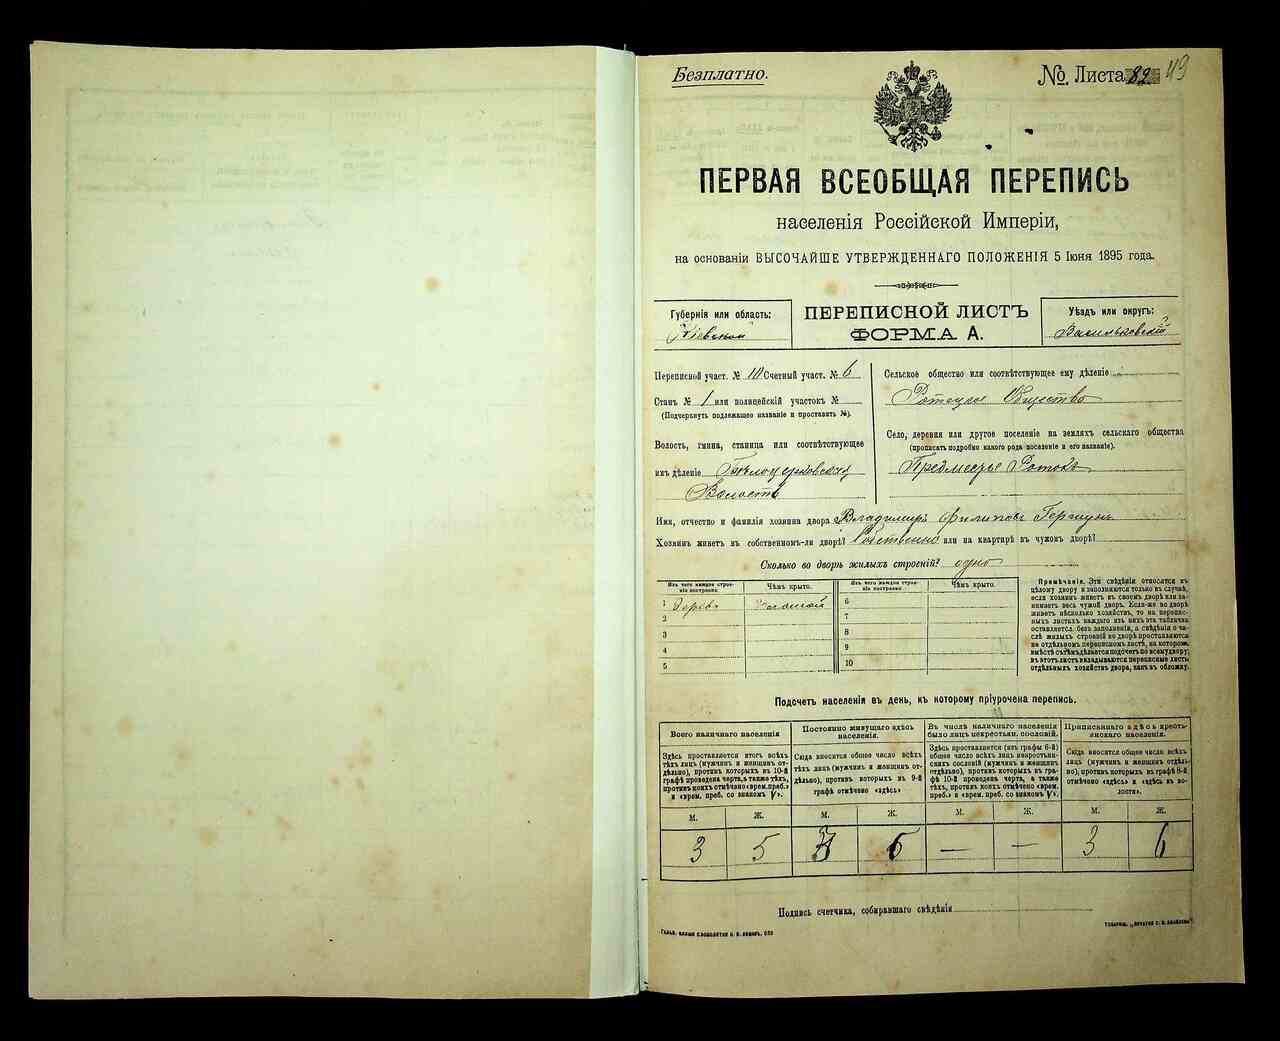 Безплатно.
№ Листа 82 49
ПЕРВАЯ ВСЕОБЩАЯ ПЕРЕПИСЬ
населенія Россійской Имперіи,
на основаніи ВЫСОЧАЙШЕ УТВЕРЖДЕННАГО ПОЛОЖЕНІЯ 5 Іюня 1895 года.
Губернія или область:
Кіевской
ПЕРЕПИСНОЙ ЛИСТЪ
ФОРМА А.
Уѣздъ или округъ:
Васильковскій
Переписной участ. № 10 Счетный участ. № 6
Станъ № 1 или полицейскій участокъ №
(Подчеркнуть подлежащее названіе и проставить №).
Волость, гмина, станица или соотвѣтствующее
имъ дѣленіе Бѣлоцерковская
Волость
Сельское общество или соотвѣтствующее ему дѣленіе
Ротецкое Общество
Село, деревня или другое поселеніе на земляхъ сельскаго общества
(прописать подробно какого рода поселеніе и его названіе).
Предместье Ротокъ
Имя, отчество и фамилія хозяина двора Владимиръ Филиповъ Гершунъ
Хозяинъ живетъ въ собственномъ-ли дворѣ? Собственно или на квартирѣ въ чужомъ дворѣ?
Сколько во дворѣ жилыхъ строеній? одно
Изъ чего каждое строеніе построено.
Чѣмъ крыто.
Изъ чего каждое строеніе построено.
Чѣмъ крыто.
1 Дерев. Соломой 6
2 7
3 8
4 9
5 10
Примѣчаніе. Эти свѣдѣнія относятся къ
цѣлому двору и заполняются только въ случаѣ,
если хозяинъ живетъ въ своемъ дворѣ или занимаетъ
весь чужой дворъ. Если-же во дворѣ
живетъ нѣсколько хозяйствъ, то на переписныхъ
листахъ каждаго изъ нихъ эта табличка
оставляется безъ заполненія, а свѣдѣнія о числѣ
жилыхъ строеній во дворѣ проставляются
на отдѣльномъ переписномъ листѣ, на которомъ
вмѣстѣ съ тѣмъ дѣлается подсчетъ по всему двору;
въ этотъ листъ вкладываются переписные листы
отдѣльныхъ хозяйствъ двора, какъ въ обложку.
Подсчетъ населенія въ день, къ которому пріурочена перепись.
Всего наличнаго населенія
Здѣсь проставляется итогъ всѣхъ
тѣхъ лицъ (мужчинъ и женщинъ отдѣльно),
противъ которыхъ въ 10-й
графѣ проведена черта, а также тѣхъ,
противъ коихъ отмѣчено «врем. преб.»
и «врем. преб. со знакомъ V».
Постоянно живущаго здѣсь
населенія.
Сюда вносится общее число всѣхъ
тѣхъ лицъ (мужчинъ и женщинъ отдѣльно),
противъ которыхъ въ 9-й
графѣ отмѣчено «здѣсь»
Въ числѣ наличнаго населенія
было лицъ некрестьян. сословій.
Здѣсь проставляется (изъ графы 6-й)
общее число всѣхъ лицъ некрестьянскихъ
сословій (мужчинъ и женщинъ
отдѣльно), противъ которыхъ въ графѣ
10-й проведена черта, а также
тѣхъ, противъ коихъ отмѣчено «врем.
преб.» и «врем. преб. со знакомъ V».
Приписаннаго здѣсь крестьянскаго
населенія.
Сюда вносится общее число всѣхъ
лицъ (мужчинъ и женщинъ отдѣльно),
противъ которыхъ въ графѣ 8-й
отмѣчено «здѣсь» и «здѣсь въ волости».
М. Ж. М. Ж. М. Ж. М. Ж.
3 5 3 6 — — 3 6
Подпись счетчика, собиравшаго свѣдѣнія